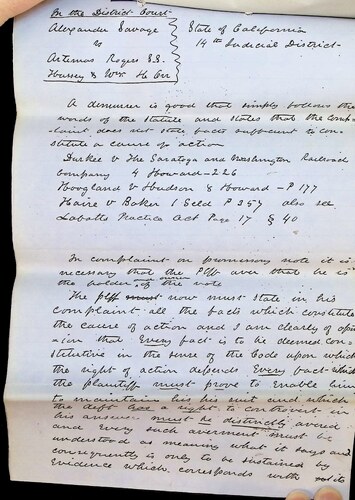 In the District Court
Alexander Savage
vs
Artemas Rogers S.S.
Hussey & Wm H. Orr
State of California
14th Judicial District
A demurrer is good that simply follows the
words of the Statute and states that the comp-
laint does not state facts sufficient to con-
stitute a cause of action
Durkee v The Saratoga and Washington Railroad
Company 4 Howard-226
Hoogland v Hudson 8 Howard - P 177
Haire v Baker 1 Seld P 357 also see
Labatts Practice Act Page 17 § 40
In complaint on promissory note it is
necessary that the Plff aver that he is
the holder or owner of the note
The plff must now must state in his
complaint all the facts which constitute
the cause of action and I am clearly of opin
-ion that Every fact is to be deemed con-
stitutive in the sense of the Code upon which
the right of action depends Every fact which
the plaintiff must prove to Enable him
to maintain his suit and which
the deft has a right to controvert in
his answer must be distinctly avered
and Every such averment must be
understood as meaning what it says and
consequently is only to be sustained by
Evidence which corresponds with its